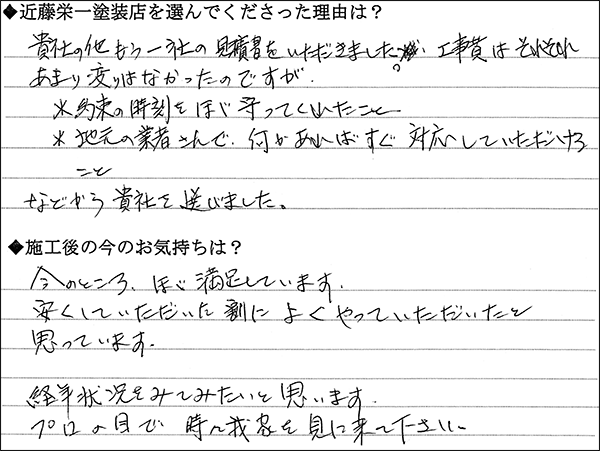 ◆近藤栄一塗装店を選んでくださった理由は？
貴社の他もう一社の見積書をいただきました。工事費はそれぞれ
あまり変りはなかったのですが、
＊約束の時刻をほぼ守ってくれたこと
＊地元の業者さんで、何かあればすぐ対応していただける
こと
などから貴社を選びました。
◆施工後の今のお気持ちは？
今のところ、ほぼ満足しています。
安くしていただいた割によくやっていただいたと
思っています。
経年状況をみてみたいと思います。
プロの目で時々我家を見に来て下さい。